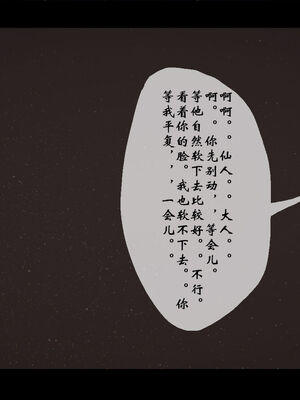 啊啊。。仙人。。大人。。
啊。。你先别动，，等会儿
等他自然软下去比较好。。不行。
看着你的脸。我也软不下去。。你
等我平复，，一会儿。。